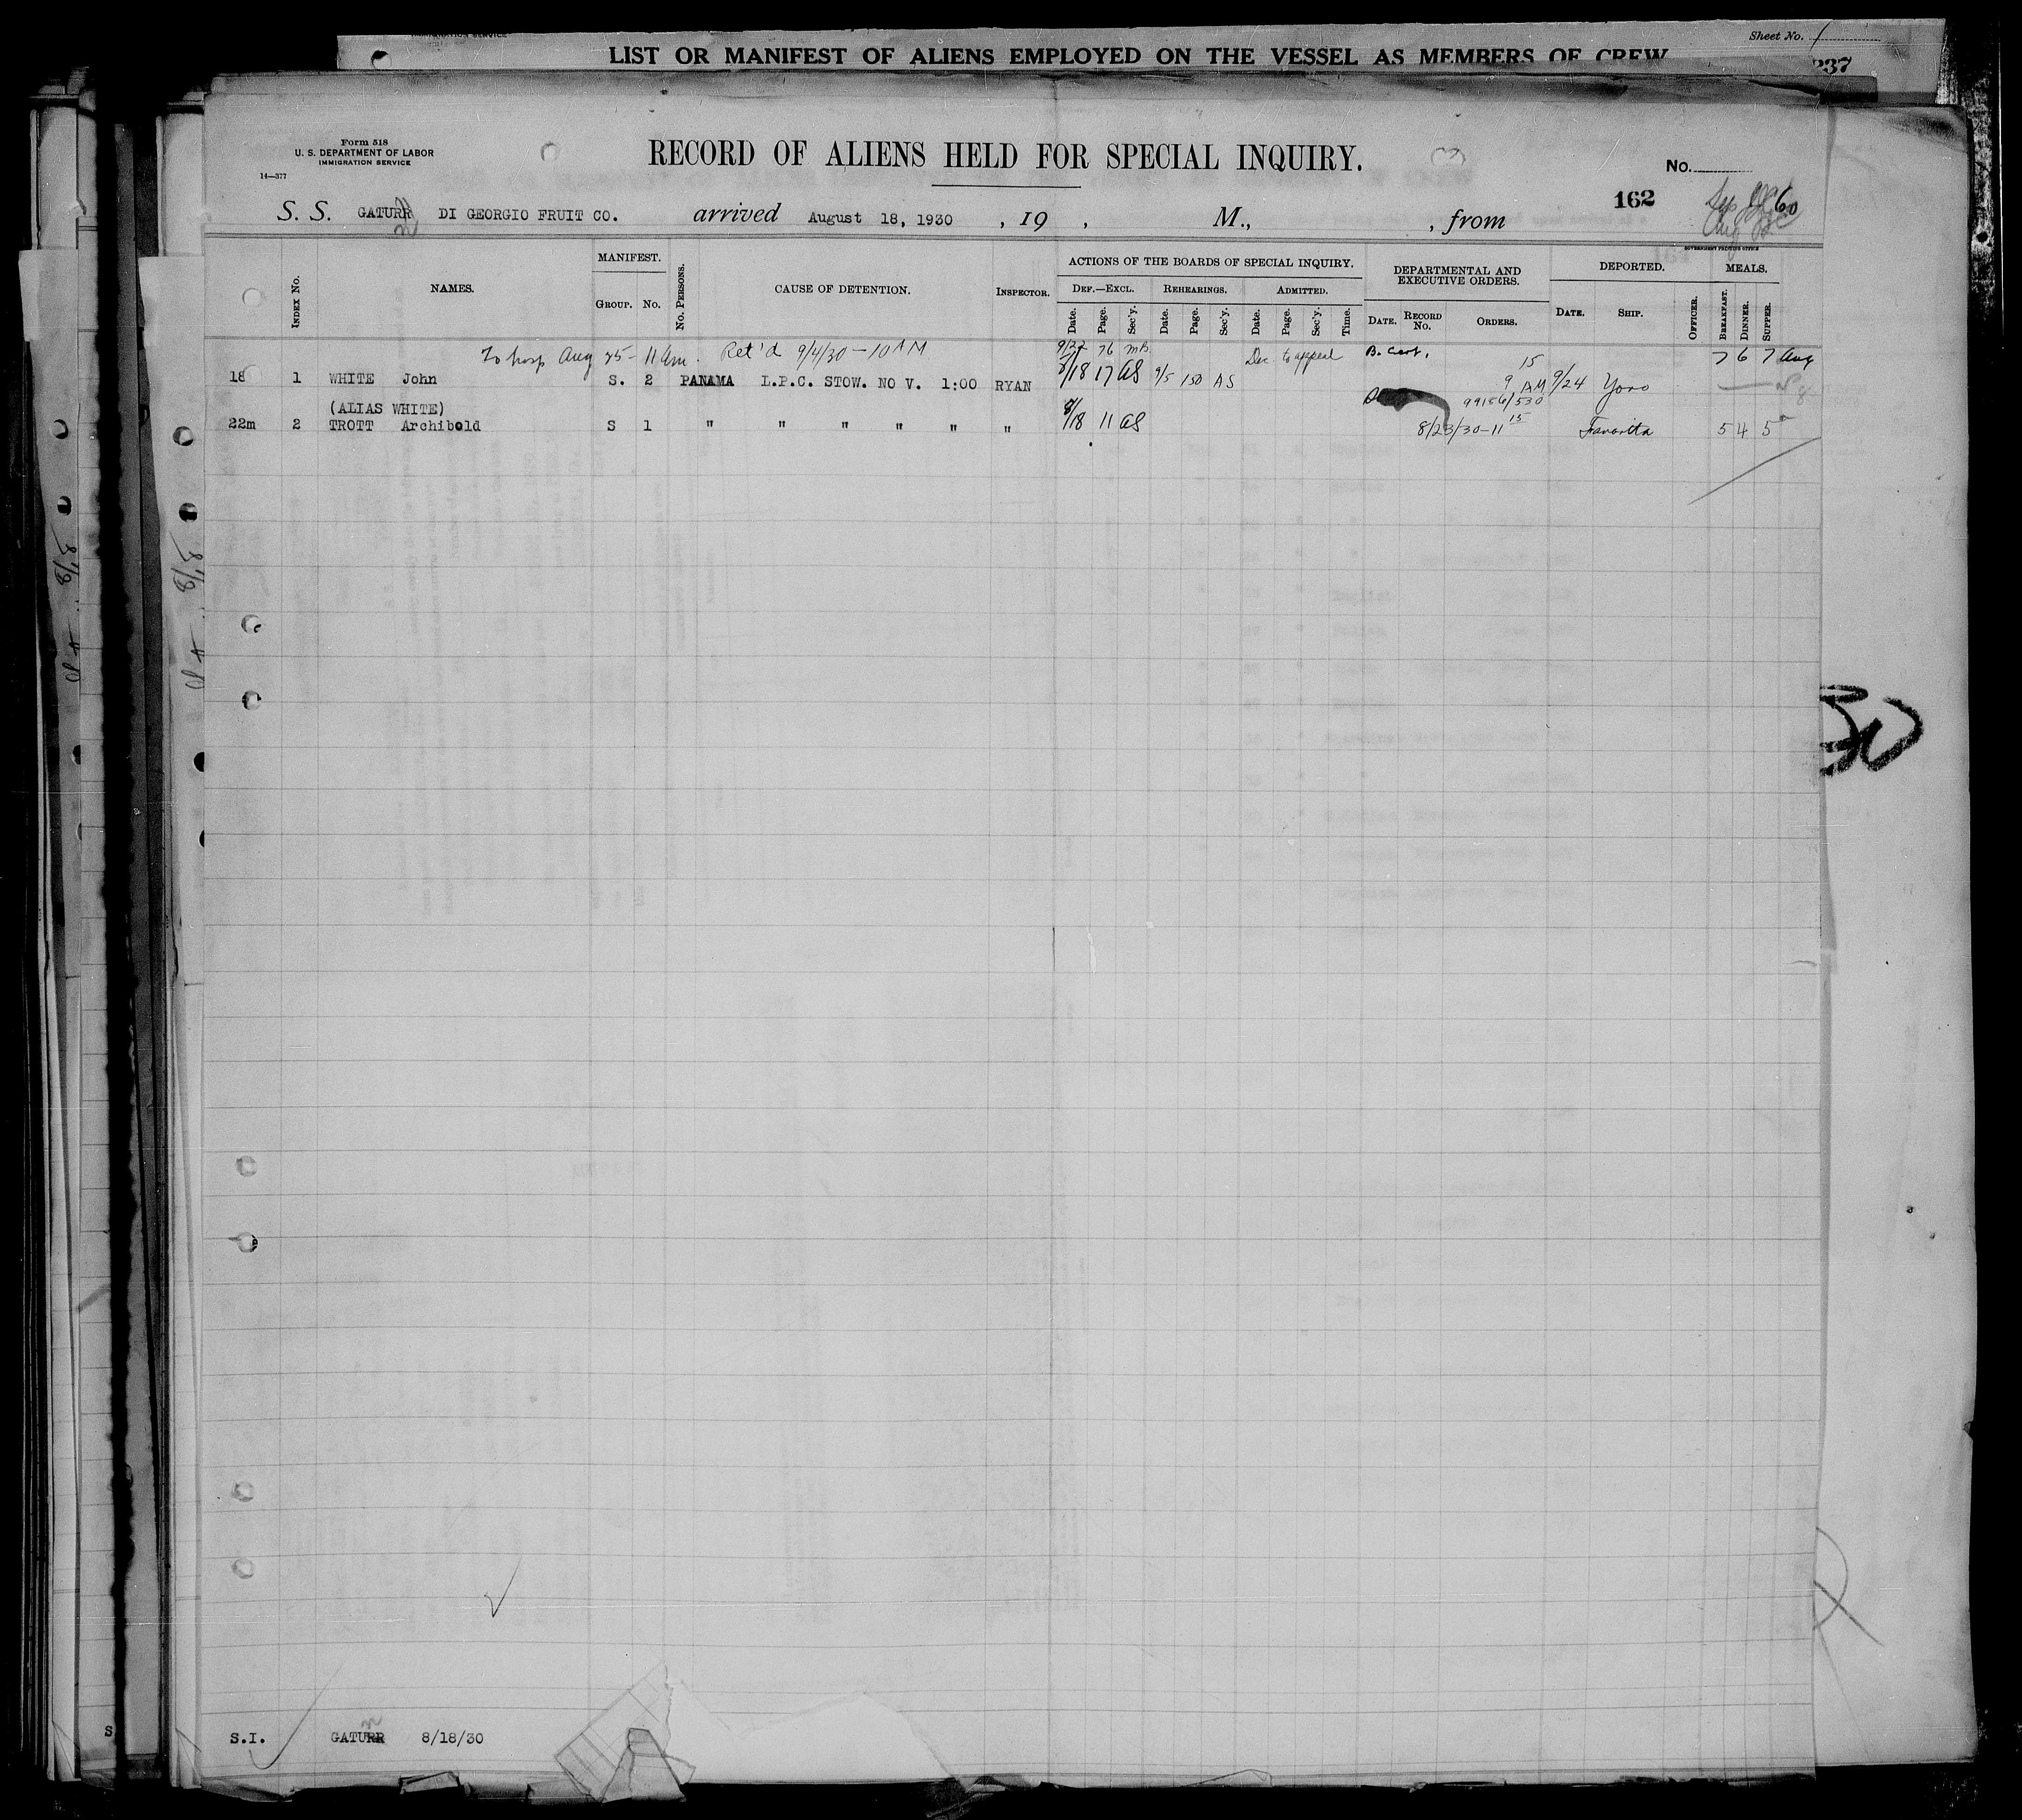 Sheet No. 1
LIST OR MANIFEST OF ALIENS EMPLOYED ON THE VESSEL AS MEMBERS OF CREW
237
Form 518
U. S. DEPARTMENT OF LABOR
IMMIGRATION SERVICE
14—377
RECORD OF ALIENS HELD FOR SPECIAL INQUIRY.
No.
162
S. S. GATURR DI GEORGIO FRUIT CO. arrived August 18, 1930 , 19 , M., , from
GOVERNMENT PRINTING OFFICE
INDEX No. NAMES. MANIFEST. GROUP. No. No. PERSONS. CAUSE OF DETENTION. INSPECTOR. ACTIONS OF THE BOARDS OF SPECIAL INQUIRY. DEF.—EXCL. Date. Page. Sec'y. REHEARINGS. Date. Page. Sec'y. ADMITTED. Date. Page. Sec'y. Time. DEPARTMENTAL AND EXECUTIVE ORDERS. DATE. RECORD No. ORDERS. DEPORTED. DATE. SHIP. OFFICER. MEALS. BREAKFAST. DINNER. SUPPER.
To hosp Aug 25 - 11 am. Ret'd 9/4/30 - 10 AM 76 MB Dec to appeal B. Cert. 15 7 6 7 Aug
18 1 WHITE John S. 2 PANAMA L.P.C. STOW. NO V. 1:00 RYAN 8/18 17 AS 9/5 150 AS 9 AM 9/24 Yoro
(ALIAS WHITE) 99186/530
22m 2 TROTT Archibold S 1 " " " " " " 8/18 11 AS 8/23/30-11 15 Favorita 5 4 5
S.I. GATURR 8/18/30